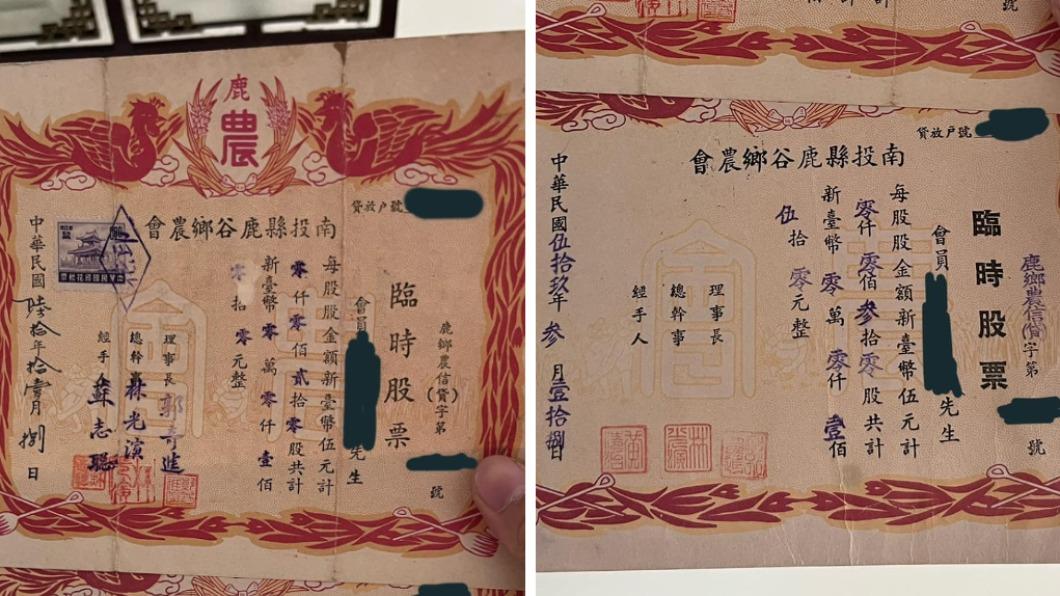 鹿
農
貸放戶號
南投縣鹿谷鄉農會
鹿鄉農信(貸)字第 號
臨時股票
會員 先生
每股股金額新臺幣伍元計
零仟零佰貳拾零股共計
新臺幣零萬零仟壹佰
零拾零元整
理事長 郭
總幹事 林光演
經手 蘇志聰
中華民國陸拾年拾月捌日
貸放戶號
南投縣鹿谷鄉農會
鹿鄉農信 字第 號
臨時股票
會員 先生
每股股金額新臺幣伍元計
零仟零佰參拾零股共計
新臺幣零萬零仟壹佰
伍拾零元整
理事長
總幹事
經手人
中華民國伍拾玖年參月壹拾捌日